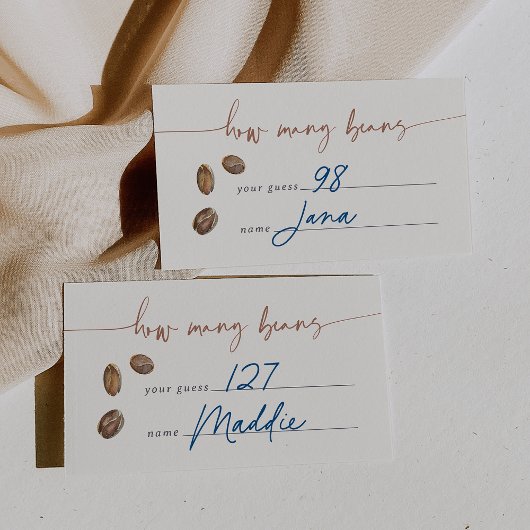 how many beans
your guess 98
name Jana
how many beans
your guess 127
name Maddie